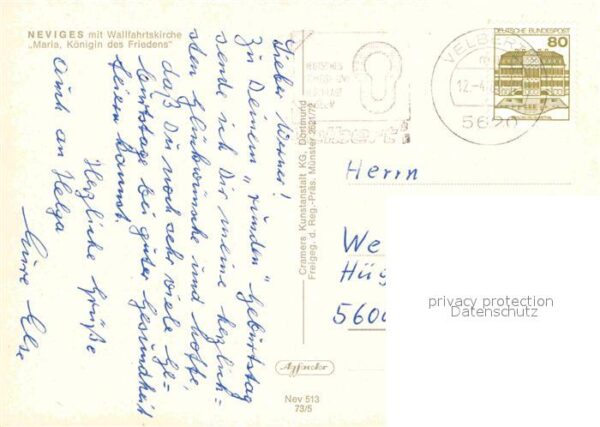 NEVIGES mit Wallfahrtskirche
„Maria, Königin des Friedens"
Lieber Werner!
Zu Deinem „runden" Geburtstag
sende ich Dir meine herzlich=
sten Glückwünsche und hoffe,
daß Du noch sehr viele Ge=
burtstage bei guter Gesundheit
feiern kannst.
Herzliche Grüße
auch an Helga
Eure Else
Cramers Kunstanstalt KG, Dortmund
Freigeg. d. Reg.-Präs. Münster 2621/72
Nev 513
73/5
VELBERT
12.-4.
5620
DEUTSCHE BUNDESPOST
80
Herrn
We
Hüg
5600
privacy protection
Datenschutz